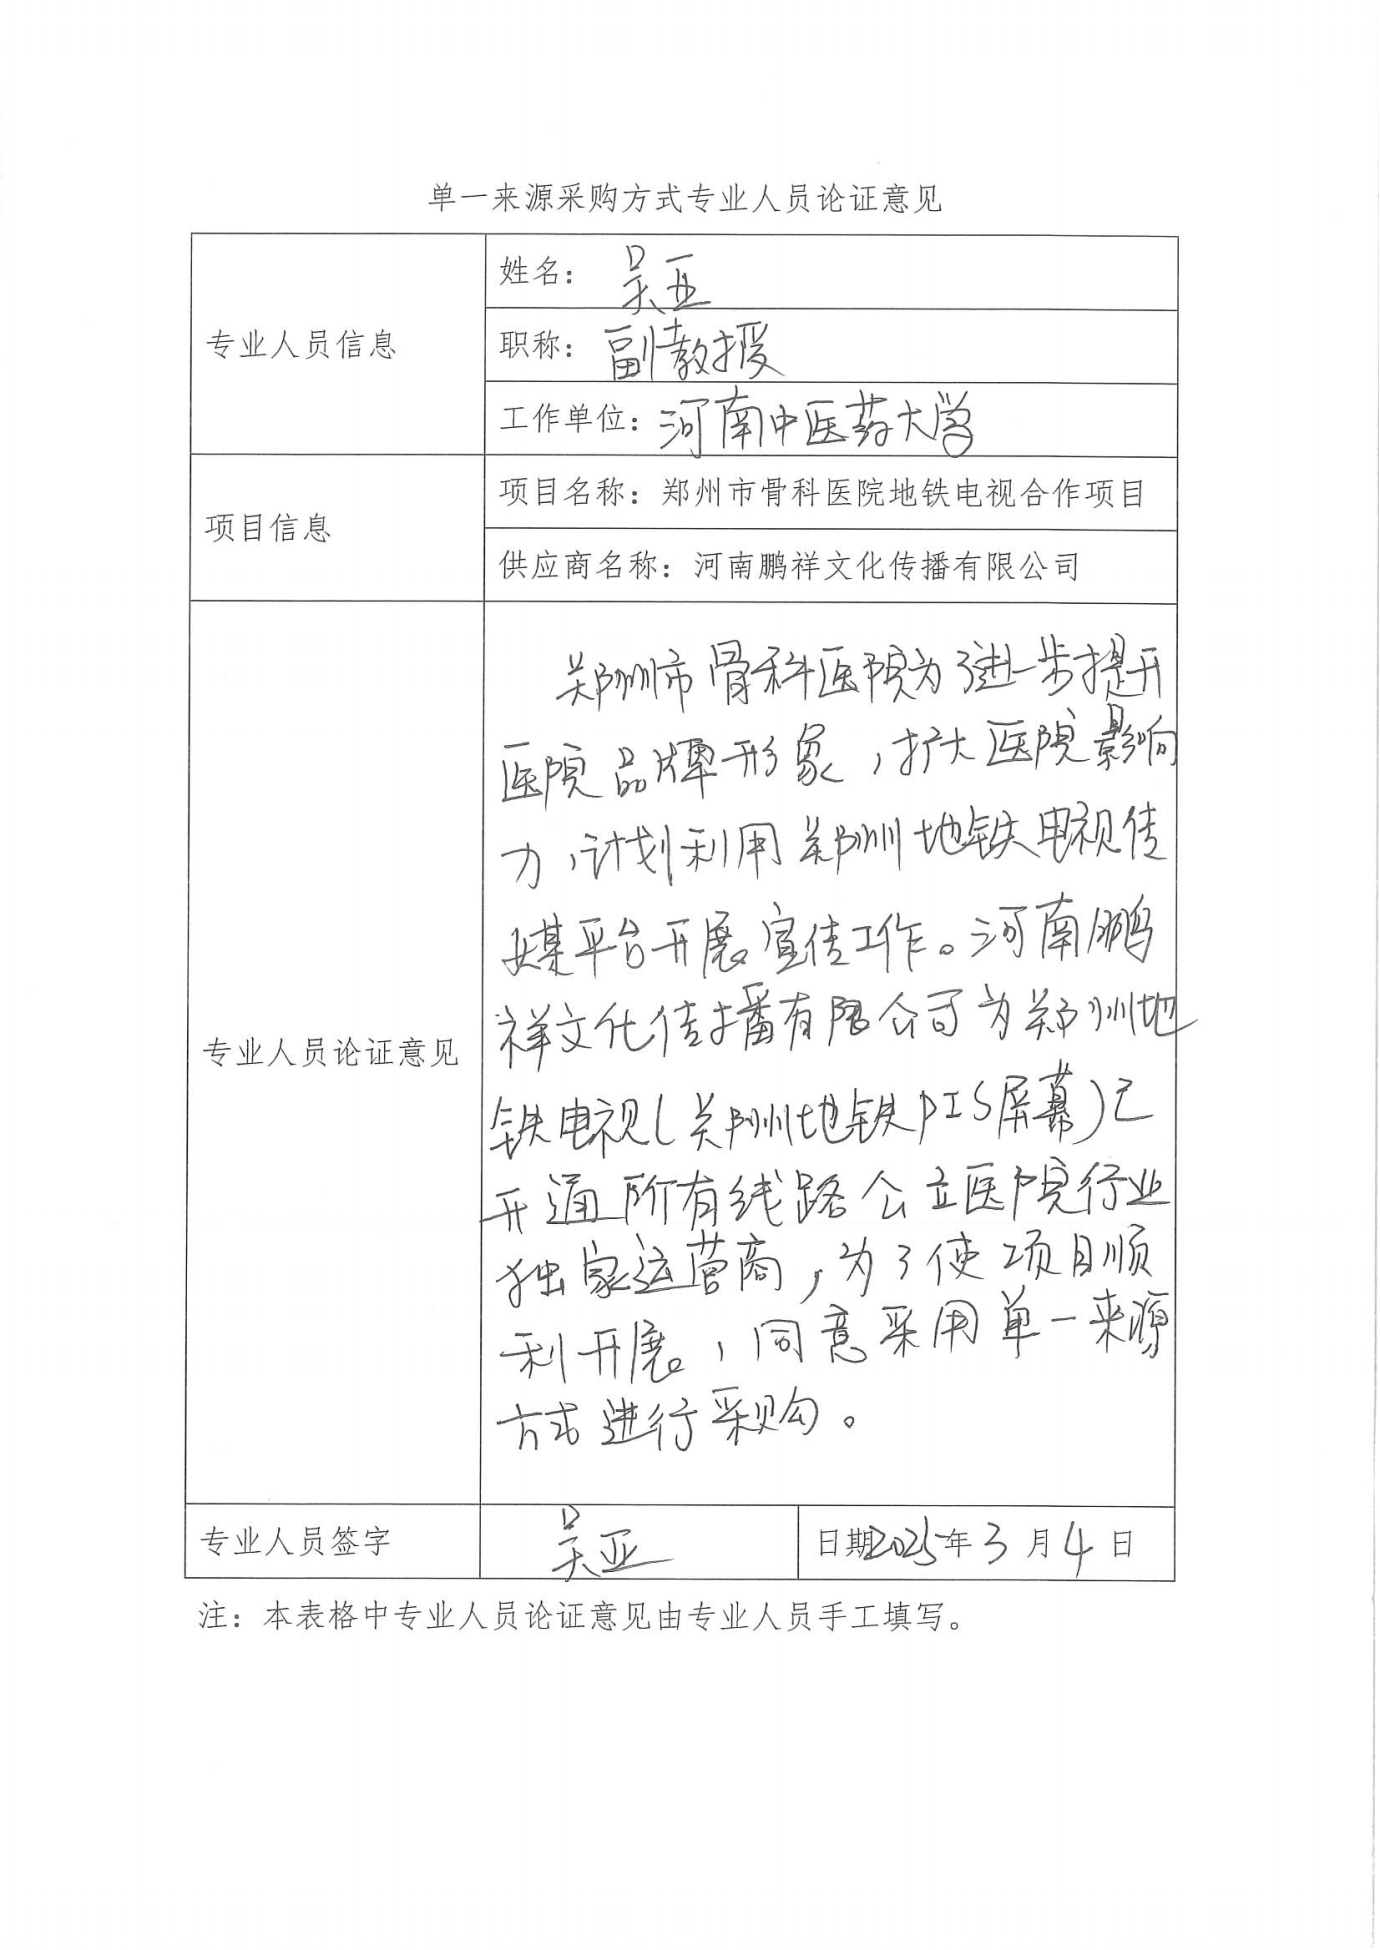 单一来源采购方式专业人员论证意见
专业人员信息
姓名：吴亚
职称：副教授
工作单位：河南中医药大学
项目信息
项目名称：郑州市骨科医院地铁电视合作项目
供应商名称：河南鹏祥文化传播有限公司
专业人员论证意见
郑州市骨科医院为了进一步提升
医院品牌形象，扩大医院影响
力，计划利用郑州地铁电视传
媒平台开展宣传工作。河南鹏
祥文化传播有限公司为郑州地
铁电视（郑州地铁PIS屏幕）已
开通所有线路公立医院行业
独家运营商，为了使项目顺
利开展，同意采用单一来源
方式进行采购。
专业人员签字
吴亚
日期2025年3月4日
注：本表格中专业人员论证意见由专业人员手工填写。